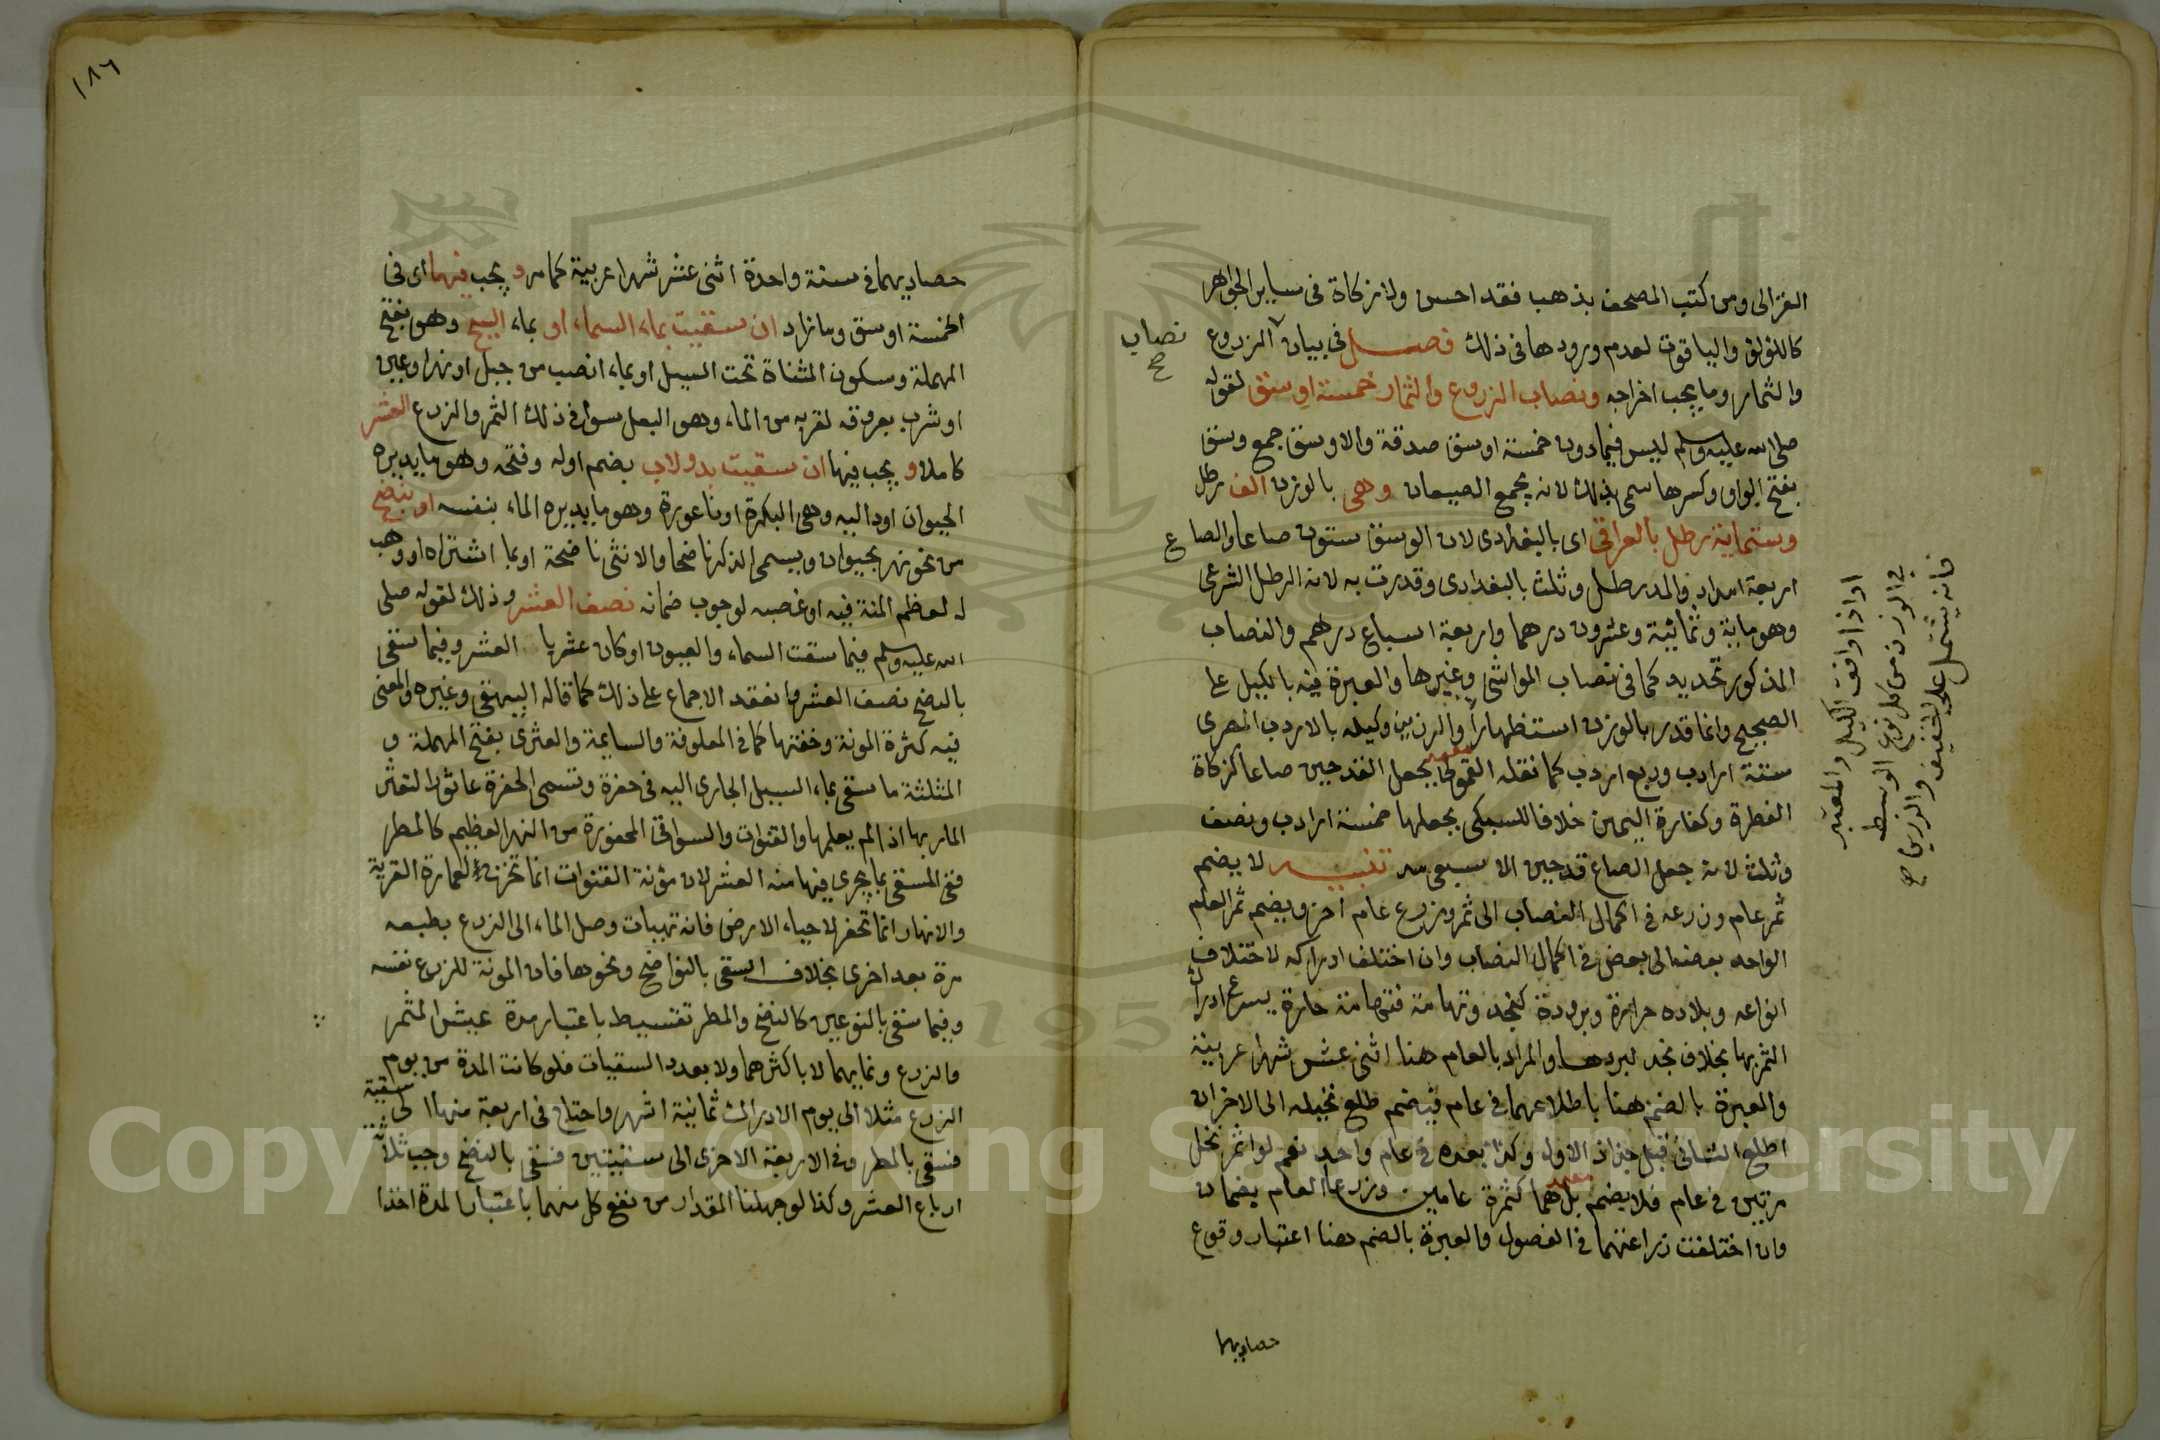 الغزالى ومن كتب المصحف بذهب فقد احسن ولا زكاة فى ساير الجواهر
كاللؤلؤ والياقوت لعدم ورودها فى ذلك فصل فى بيان الزروع
نصاب صح
والثمار وما يجب اخراجه ونصاب الزروع والثمار خمسة اوسق لقوله
صلى الله عليه وسلم ليس فيما دون خمسة اوسق صدقة والاوسق جمع وسق
بفتح الواو وكسرها سمى بذلك لانه يجمع الصيعان وهى بالوزن الف رطل
وستماية رطل بالعراقى اى بالبغدادى لان الوسق ستون صاعا والصاع
اربعة امداد والمد رطل وثلث بالبغدادى وقدرت به لانه الرطل الشرعى
وهو ماية وثمانية وعشرون درهما واربعة اسباع درهم والنصاب
المذكور تحديد كما فى نصاب المواشى وغيرها والعبرة فيه بالكيل على
الصحيح وانما قدر بالوزن استظهارا والرزين وكيله بالاردب المصرى
او اذا وافق الكيل والمعتبر
فى الوزن من كل نوع الوسط
فانه يشتمل على الخفيف والرزين صح
ستة ارادب وربع اردب كما نقله القمولى بجعل القدحين صاعا كزكاة
الفطرة وكفارة اليمين خلافا للسبكى بجعلها خمسة ارادب ونصف
وثلث لانه جعل الصاع قدحين الا سبعى مد تنبيه لا يضم
ثمر عام وزرعه فى اكمال النصاب الى ثمر وزرع عام اخر ويضم ثمر العام
الواحد بعضه الى بعض فى اكمال النصاب وان اختلف ادراكه لاختلاف
انواعه وبلاده حرارة وبرودة كنجد وتهامة فتهامة حارة يسرع ادراك
الثمر بها بخلاف نجد لبردها والمراد بالعام هنا اثنى عشر شهرا عربية
والعبرة بالضم هنا باطلاعهما فى عام فيضم طلع نخيله الى الاخر ان
اطلع الثانى قبل جذاذ الاول وكذا بعده فى عام واحد نعم لو اثمر نخل
مرتين فى عام فلا يضم بل هما كثمرة عامين وزرعا العام يضمان
وان اختلفت زراعتهما فى الفصول والعبرة بالضم هنا اعتبار وقوع
حصاديهما
١٨٦
حصاديهما فى سنة واحدة اثنى عشر شهرا عربية كما مر و يجب فيها اى فى
الخمسة اوسق وما زاد ان سقيت بماء السماء او بماء السيح وهو بفتح
المهملة وسكون المثناة تحت السيل او بماء انصب من جبل او نهر او عين
او شرب بعروقه لقربه من الماء وهو البعل سواء فى ذلك الثمر والزرع العشر
كاملا و يجب فيها ان سقيت بدولاب بضم اوله وفتحه وهو ما يديره
الحيوان او دالية وهى البكرة او ناعورة وهو ما يديره الماء بنفسه او بنضح
من نحو نهر بحيوان ويسمى الذكر ناضحا والانثى ناضحة او بما اشتراه او وهب
له لعظم المنة فيه او غصبه لوجوب ضمانه نصف العشر وذلك لقوله صلى
الله عليه وسلم فيما سقت السماء والعيون او كان عثريا العشر وفيما سقى
بالنضح نصف العشر وانعقد الاجماع على ذلك كما قاله البيهقى وغيره والمعنى
فيه كثرة المونة وخفتها كما فى المعلوفة والسايمة والعثرى بفتح المهملة و
المثلثة ما سقى بماء السيل الجارى اليه فى حفرة وتسمى الحفرة عاثورا لتعثر
المار بها اذا لم يعلمها والقنوات والسواقى المحفورة من النهر العظيم كالمطر
ففى المسقى بما يجرى فيها منه العشر لان مؤنة القنوات انما تخرج لعمارة القرية
والانهار انما تحفر لاحياء الارض فاذا تهيات وصل الماء الى الزرع بطبعه
مرة بعد اخرى بخلاف السقى بالنواضح ونحوها فان المونة للزرع نفسه
وفيما سقى بالنوعين كالنضح والمطر تقسيط باعتبار مدة عيش الثمر
والزرع ونمايهما لا باكثرهما ولا بعدد السقيات فلو كانت المدة من يوم
الزرع مثلا الى يوم الادراك ثمانية اشهر واحتاج فى اربعة منها الى سقية
فسقى بالمطر وفى الاربعة الاخرى الى سقيتين فسقى بالنضح وجب ثلاثة
ارباع العشر وكذا لو جهلنا المقدار من نفع كل منهما باعتبار المدة اخذا
Copyright © King Saud University
195